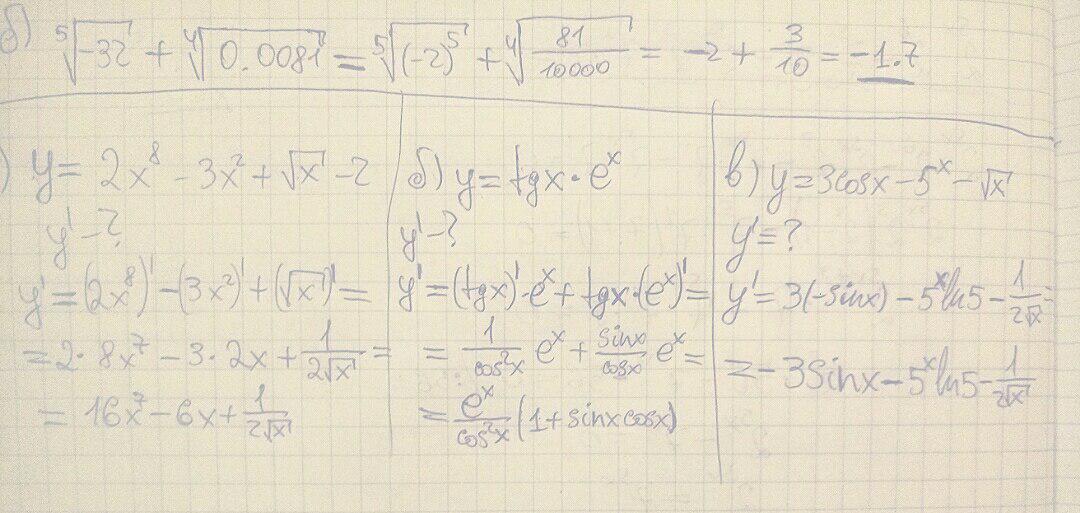 б) ⁵√-32 + ⁴√0.0081 = ⁵√(-2)⁵ + ⁴√81/10000 = -2 + 3/10 = -1.7
) y = 2x⁸ - 3x² + √x - 2
y' - ?
y' = (2x⁸)' - (3x²)' + (√x)' =
= 2·8x⁷ - 3·2x + 1/2√x =
= 16x⁷ - 6x + 1/2√x
б) y = tgx · eˣ
y' - ?
y' = (tgx)'·eˣ + tgx·(eˣ)' =
= 1/cos²x eˣ + sinx/cosx eˣ =
= eˣ/cos²x (1 + sinxcosx)
в) y = 3cosx - 5ˣ - √x
y' = ?
y' = 3(-sinx) - 5ˣln5 - 1/2√x =
= -3sinx - 5ˣln5 - 1/2√x